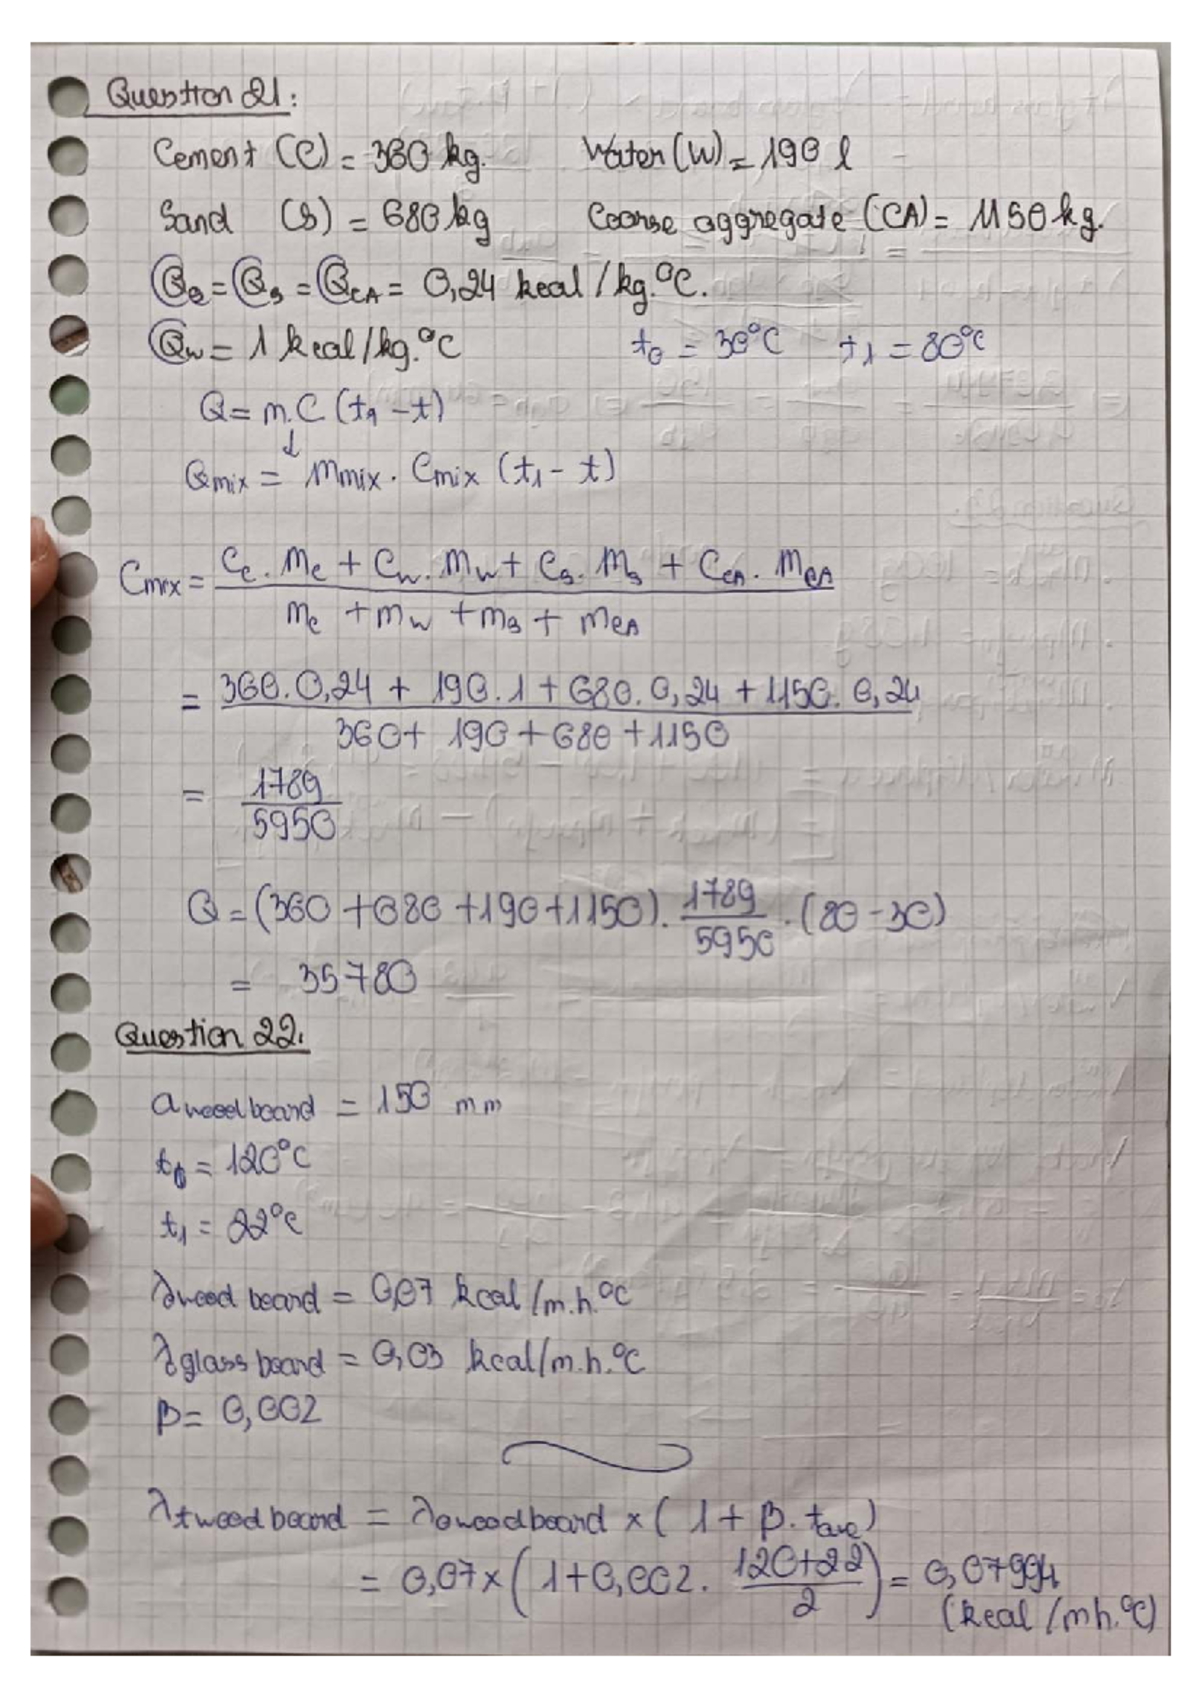 Question 21:
Cement (C) = 360 kg. Water (W) = 190 l
Sand (s) = 680 kg Coarse aggregate (CA) = 1150 kg.
Qc = Qs = QCA = 0,24 kcal/kg.°C.
Qw = 1 kcal/kg.°C t0 = 30°C t1 = 80°C
Q = m.C (t1 - t)
↓
Qmix = mmix . Cmix (t1 - t)
Cmix = Cc. Mc + Cw. Mw + Cs. Ms + CCA. MCA
mc + mw + ms + mCA
= 360.0,24 + 190.1 + 680.0,24 + 1150.0,24
360 + 190 + 680 + 1150
= 1789
5950
Q = (360 + 680 + 190 + 1150). 1789/5950 . (80 - 30)
= 35780
Question 22.
a wood board = 150 mm
t0 = 120°C
t1 = 22°C
λwood board = 0,07 kcal/m.h.°C
λglass board = 0,03 kcal/m.h.°C
β = 0,002
λt wood board = λo wood board × (1 + β. tave)
= 0,07 × (1 + 0,002. 120+22/2) = 0,07994
(kcal/mh.°C)